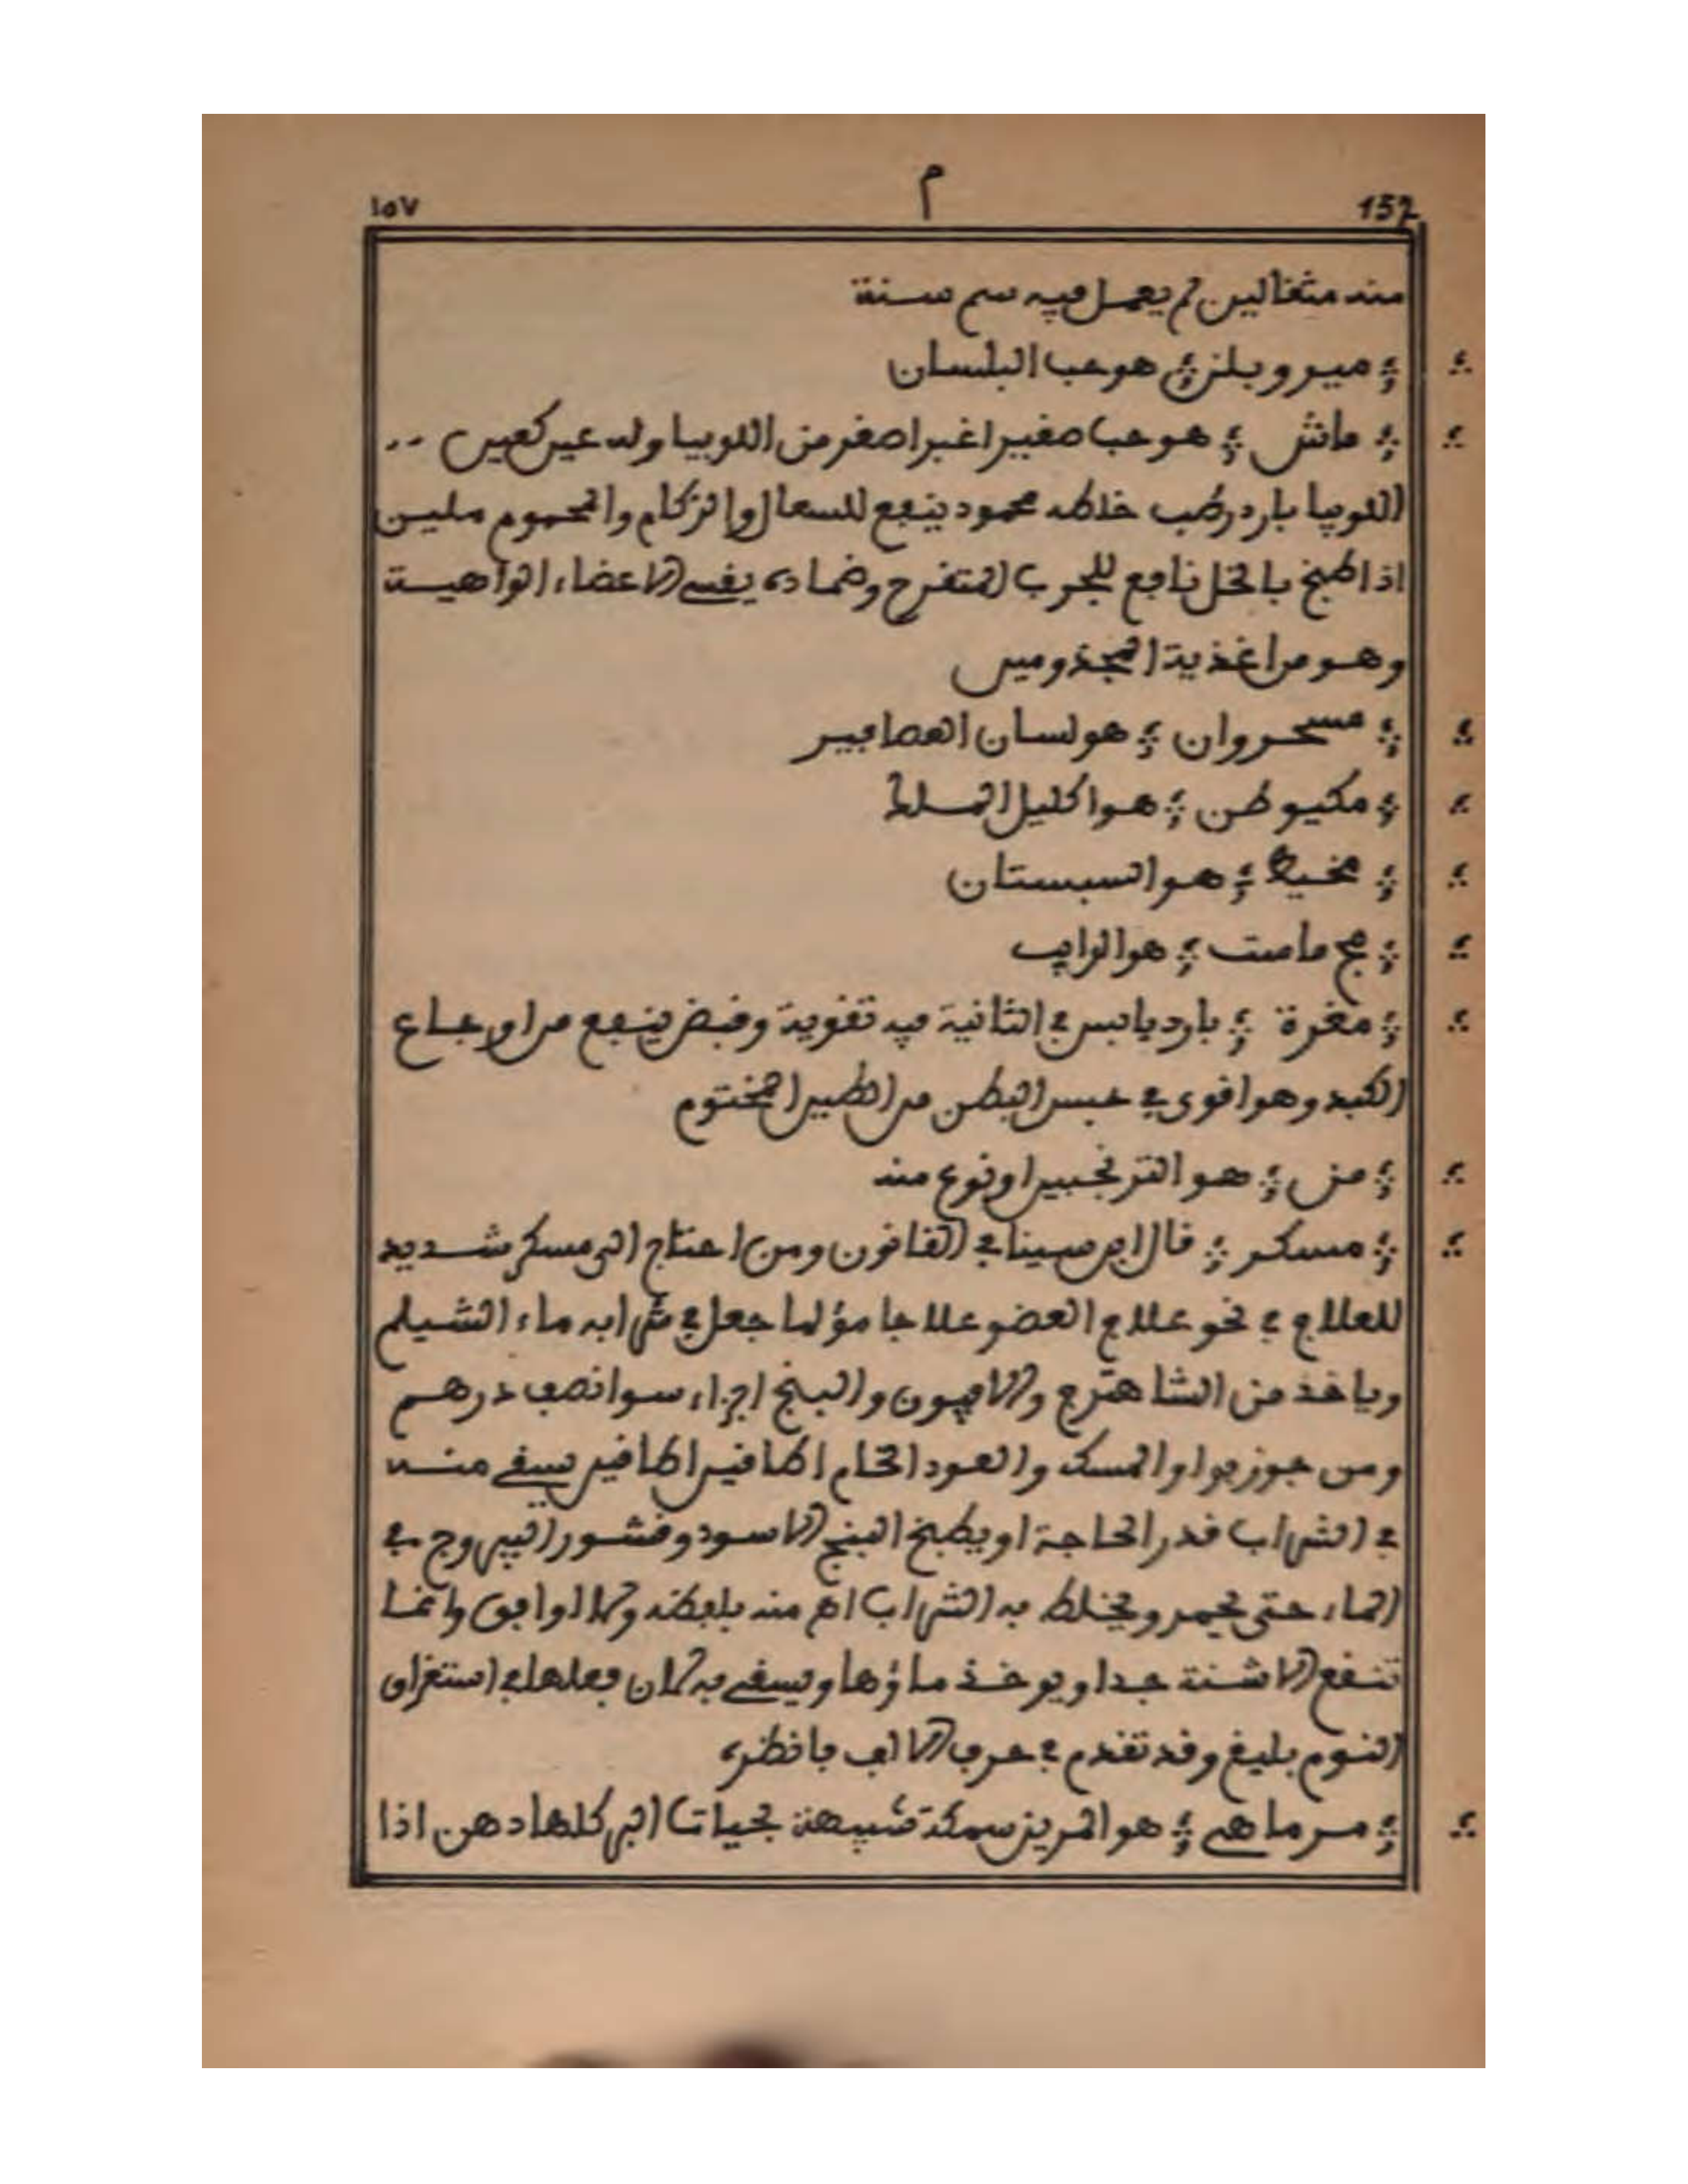 157 م ١٥٧
منه مثقالين لم يعمل فيه سم سنة
؞ ميروبلن ؞ هو حب البلسان
؞ ماش ؞ هو حب صغير اغبر اصغر من اللوبيا وله عين كعين ..
اللوبيا بارد رطب خلطه محمود ينفع للسعال والزكام والمحموم ملين
اذا طبخ بالخل نافع للجرب المتقرح وضماده يقسي الاعضاء الواهية
وهو من اغذية المجذومين
؞ مسحروان ؞ هو لسان العصافير
؞ مكيوطن ؞ هو اكليل الملك
؞ مخيط ؞ هو السبستان
؞ مج ماست ؞ هو الرايب
؞ مغرة ؞ بارد يابس في الثانية فيه تقوية وقبض ينفع من اوجاع
الكبد وهو اقوى في حبس البطن من الطين المختوم
؞ من ؞ هو الترنجبين او نوع منه
؞ مسكر ؞ قال ابن سينا في القانون ومن احتاج الى مسكر شديد
للعلاج في نحو علاج العضو علاجا مؤلما جعل في شرابه ماء الشيلم
وياخذ من الشاهترج والافيون والبنج اجزاء سوا نصف درهم
ومن جوز بوا والمسك والعود الخام اطافير اطافير يسقى منه
في الشراب قدر الحاجة او يطبخ البنج الاسود وقشور اليبروج في
الماء حتى يحمر ويخلط به الشراب اه منه بلفظه ولا اوافق وانما
تنفع الاشنة جدا ويوخذ ماؤها ويسقى به لان فعلها في استغراق
النوم بليغ وقد تقدم في حرف الالف فانظره
؞ مرماهي ؞ هو المرين سمكة شبيهة بحيات البر كلها دهن اذا